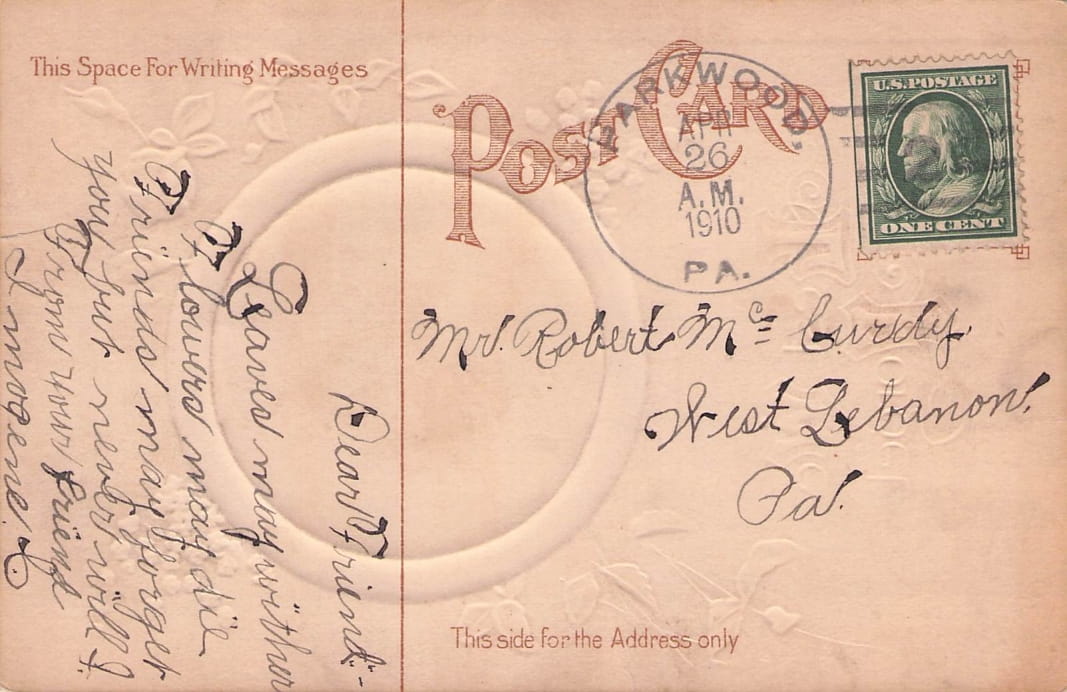 This Space For Writing Messages
POST CARD
PARKWOOD,
APR
26
A.M.
1910
PA.
U.S. POSTAGE
ONE CENT
Mr. Robert Mc Curdy
West Lebanon.
Pa.
This side for the Address only
Dear Friend:-
Leaves may wither
Flowers may die
Friends may forget
you but never will I
From your friend
Imogene